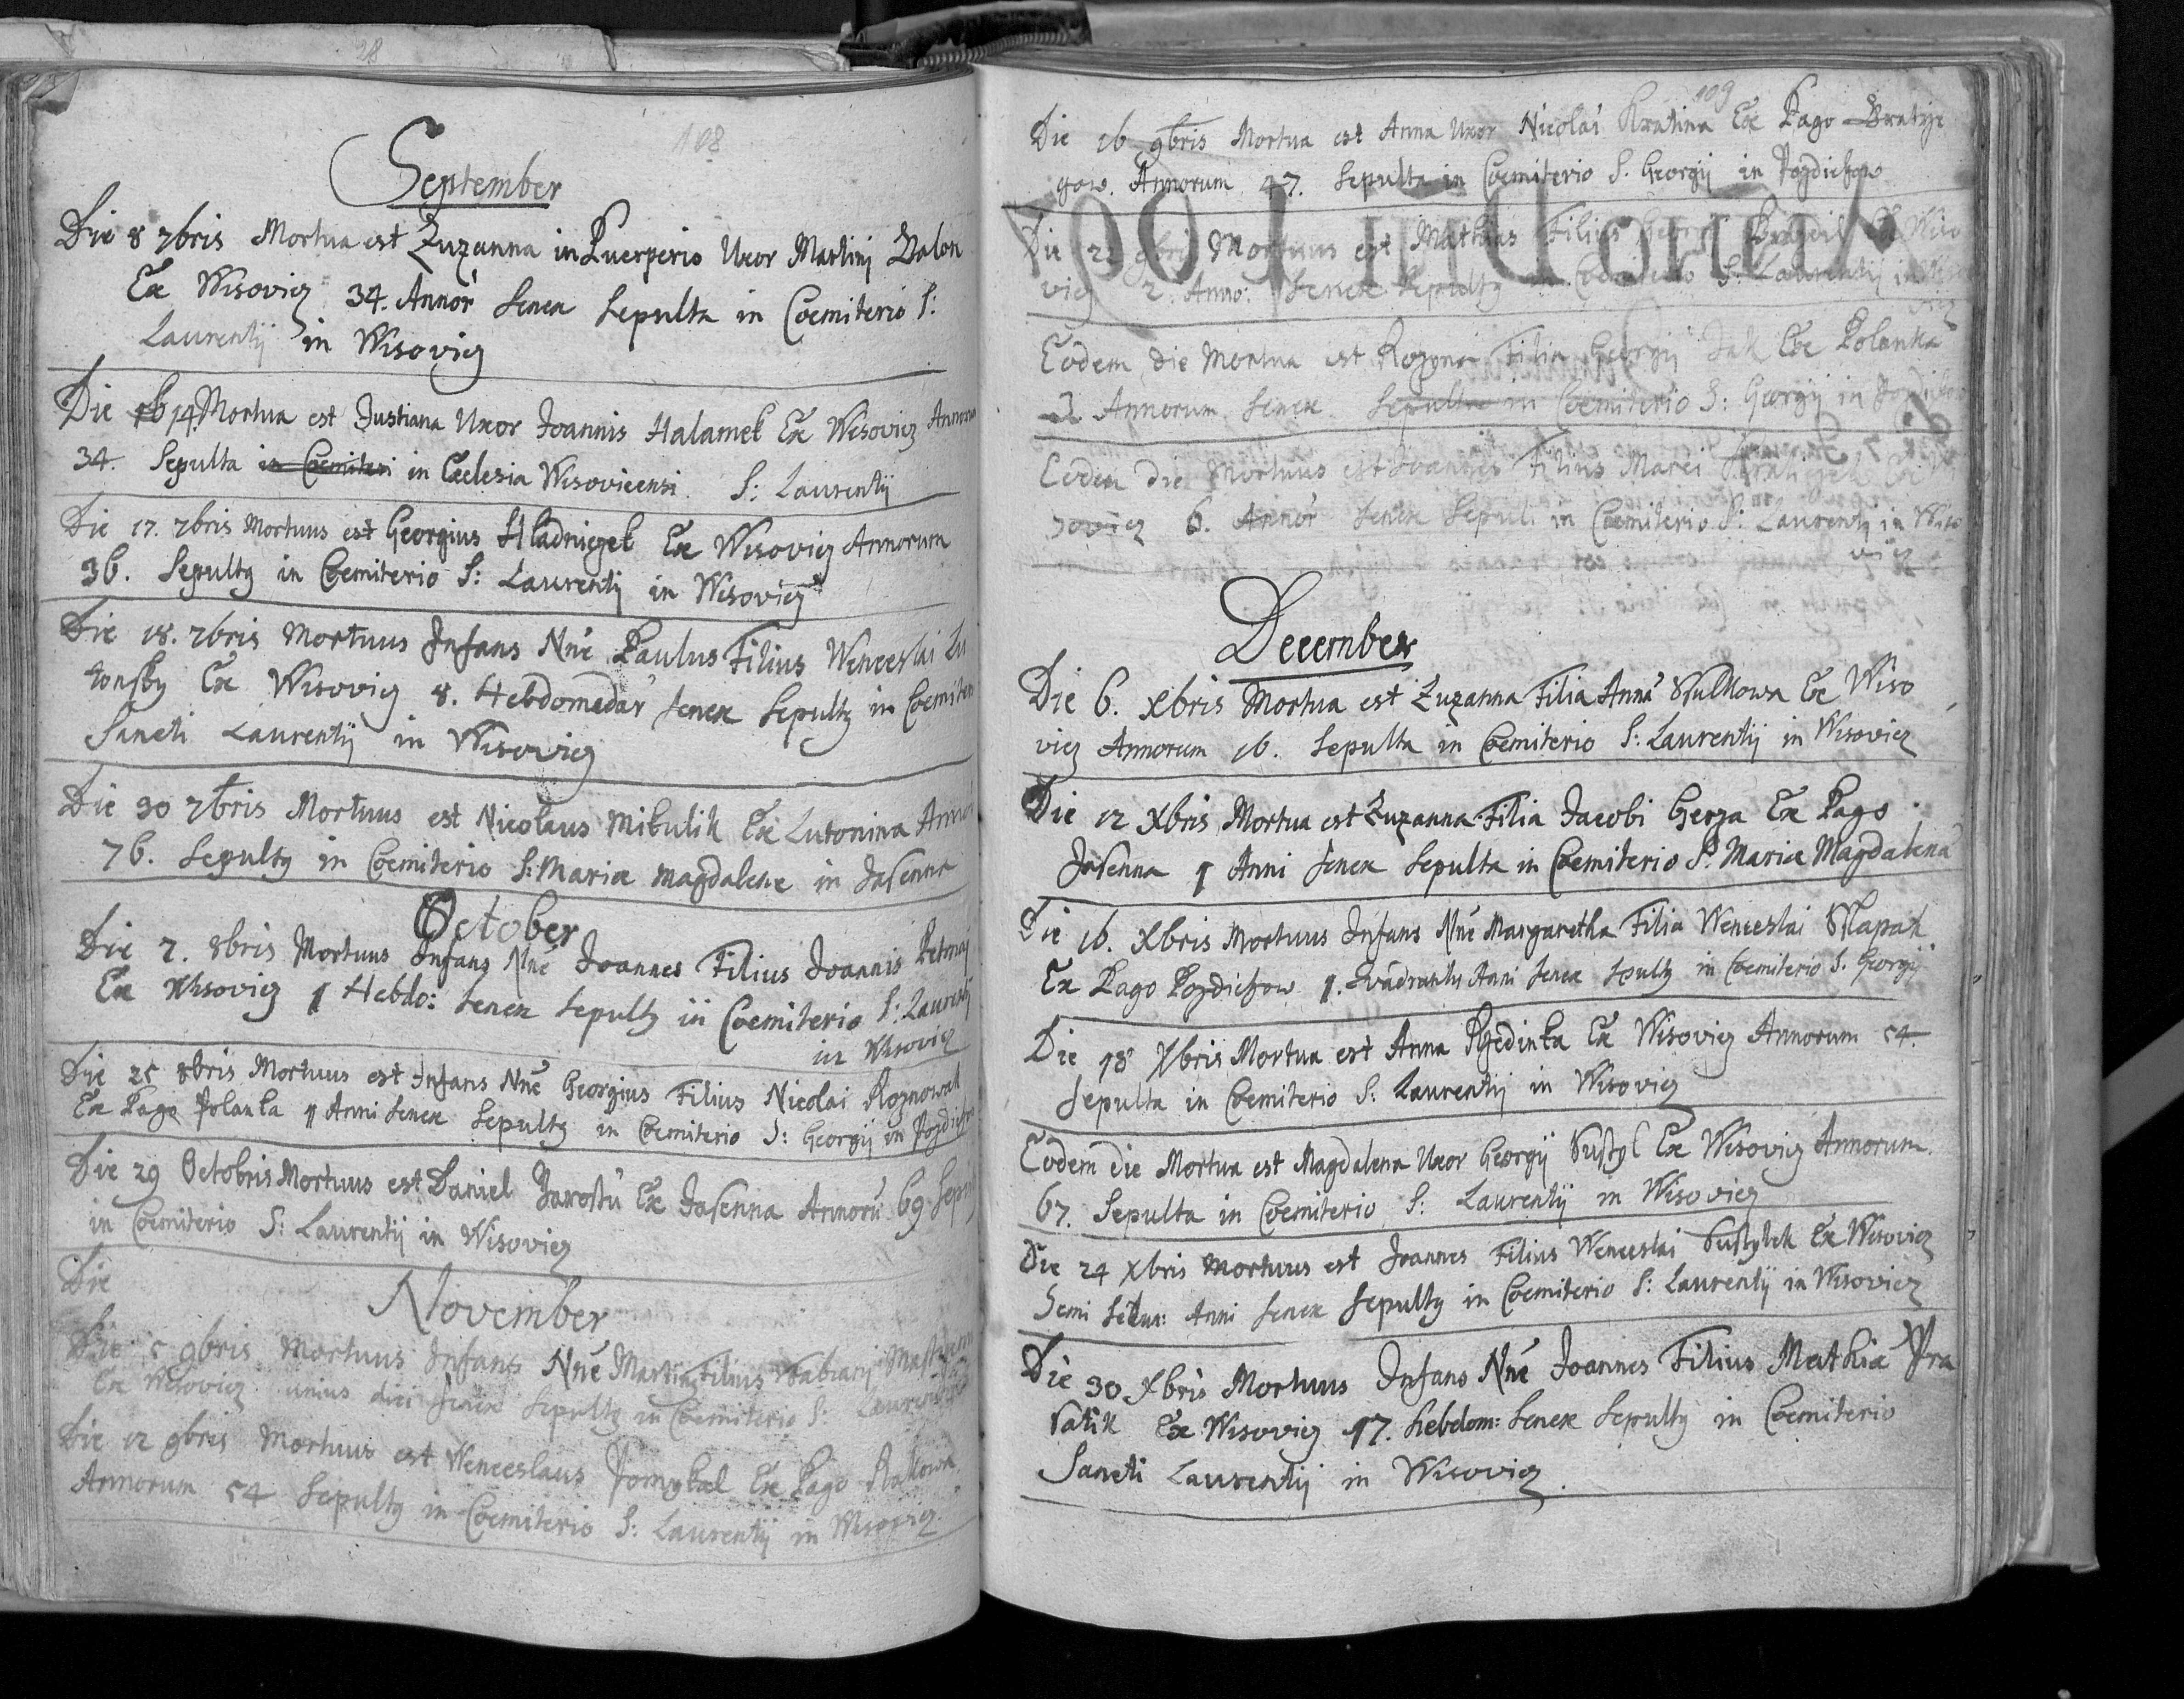 108
September
Die 8 7bris Mortua est Zuzanna in Puerperio Uxor Martinj Valon
Ex Wisovicz 34. Annor Senex Sepulta in Coemiterio S:
Laurentij in Wisovicz
Die 14 Mortua est Justiana Uxor Joannis Halamek Ex Wisovicz
34. Sepulta in Coemiteri in Ecclesia Wisovicensi. S: Laurentij
Die 17. 7bris Mortuus est Georgius Hladniczek Ex Wisovicz Annorum
36. Sepultg in Coemiterio S: Laurentij in Wisovicz
Die 18. 7bris Mortuus Infans Nne Paulus Filius Wenceslai
Ex Wisovicz 8. Hebdomedar Senex Sepultg in
Sancti Laurentij in Wisovicz
Die 30 7bris Mortuus est Nicolaus Mikulik Ex Lutonina
76. Sepultg in Coemiterio S: Mariæ Magdalene in Jasenna
October
Die 7. 8bris Mortuus Infans Nne Joannes Filius Joannis
Ex Wisovicz 1 Hebdo: Senex Sepultg in Coemiterio S: Laurentij
in Wisovicz
Die 25 8bris Mortuus est Infans Nne Georgius Filius Nicolai
Ex Pago Polanka 1 Anni Senex Sepultg in Coemiterio S: Georgij in
Die 29 Octobris Mortuus est Daniel Jarossu Ex Jasenna Annoru 69
in Coemiterio S: Laurentij in Wisovicz
Die
November
Die 5 9bris Mortuus Infans Nne Filius Fabianj
Ex Wisovicz unius diei Senex Sepultg in Coemiterio S:
Die 12 9bris Mortuus est Wenceslaus Pomykal Ex Pago
Annorum 54 Sepultg in Coemiterio S: Laurentij in Wisovicz
109
Die 16 9bris Mortua est Anna Uxor Nicolai Kratina Ex Pago Bratrze
gow. Annorum 47. Sepulta in Coemiterio S. Georgij in Pozdiechow
Die 9bris Mortuus est Mathias Filius Ex Wiso
vicz 2. Anno: Senex Sepultg in Coemiterio S: Laurentij in
Eodem die Mortua est Rozyna Filia Georgij Ex Polanka
Annorum Senex Sepulta in Coemiterio S: Georgij in
Eodem Die Mortuus est Joannes Filius
sovicz 6. Annor Senex in Coemiterio S: Laurentij in Wiso
vicz
December
Die 6. Xbris Mortua est Zuzanna Filia Anna Ex Wiso
vicz Annorum 16. Sepulta in Coemiterio S: Laurentij in Wisovicz
Die 12 Xbris Mortua est Zuzanna Filia Jacobi Gerza Ex Pago
Jasenna 1 Anni Senex Sepulta in Coemiterio S. Mariæ Magdalena
Die 16. Xbris Mortuus Infans Nne Margaretha Filia Wenceslai
Ex Pago Pozdiechow 1. Anni Senex Sepultg in Coemiterio S. Georgij
Die 18 Xbris Mortua est Anna Ex Wisovicz Annorum 54.
Sepulta in Coemiterio S: Laurentij in Wisovicz
Eodem die Mortua est Magdalena Uxor Georgij Ex Wisovicz Annorum
67. Sepulta in Coemiterio S: Laurentij in Wisovicz
Die 24 Xbris Mortuus est Joannes Filius Wenceslai Ex Wisovicz
Semi Anni Senex Sepultg in Coemiterio S: Laurentij in Wisovicz
Die 30 Xbris Mortuus Infans Nne Joannes Filius Mathiæ
Ex Wisovicz 17. hebdom: Senex Sepultg in Coemiterio
Sancti Laurentij in Wisovicz.